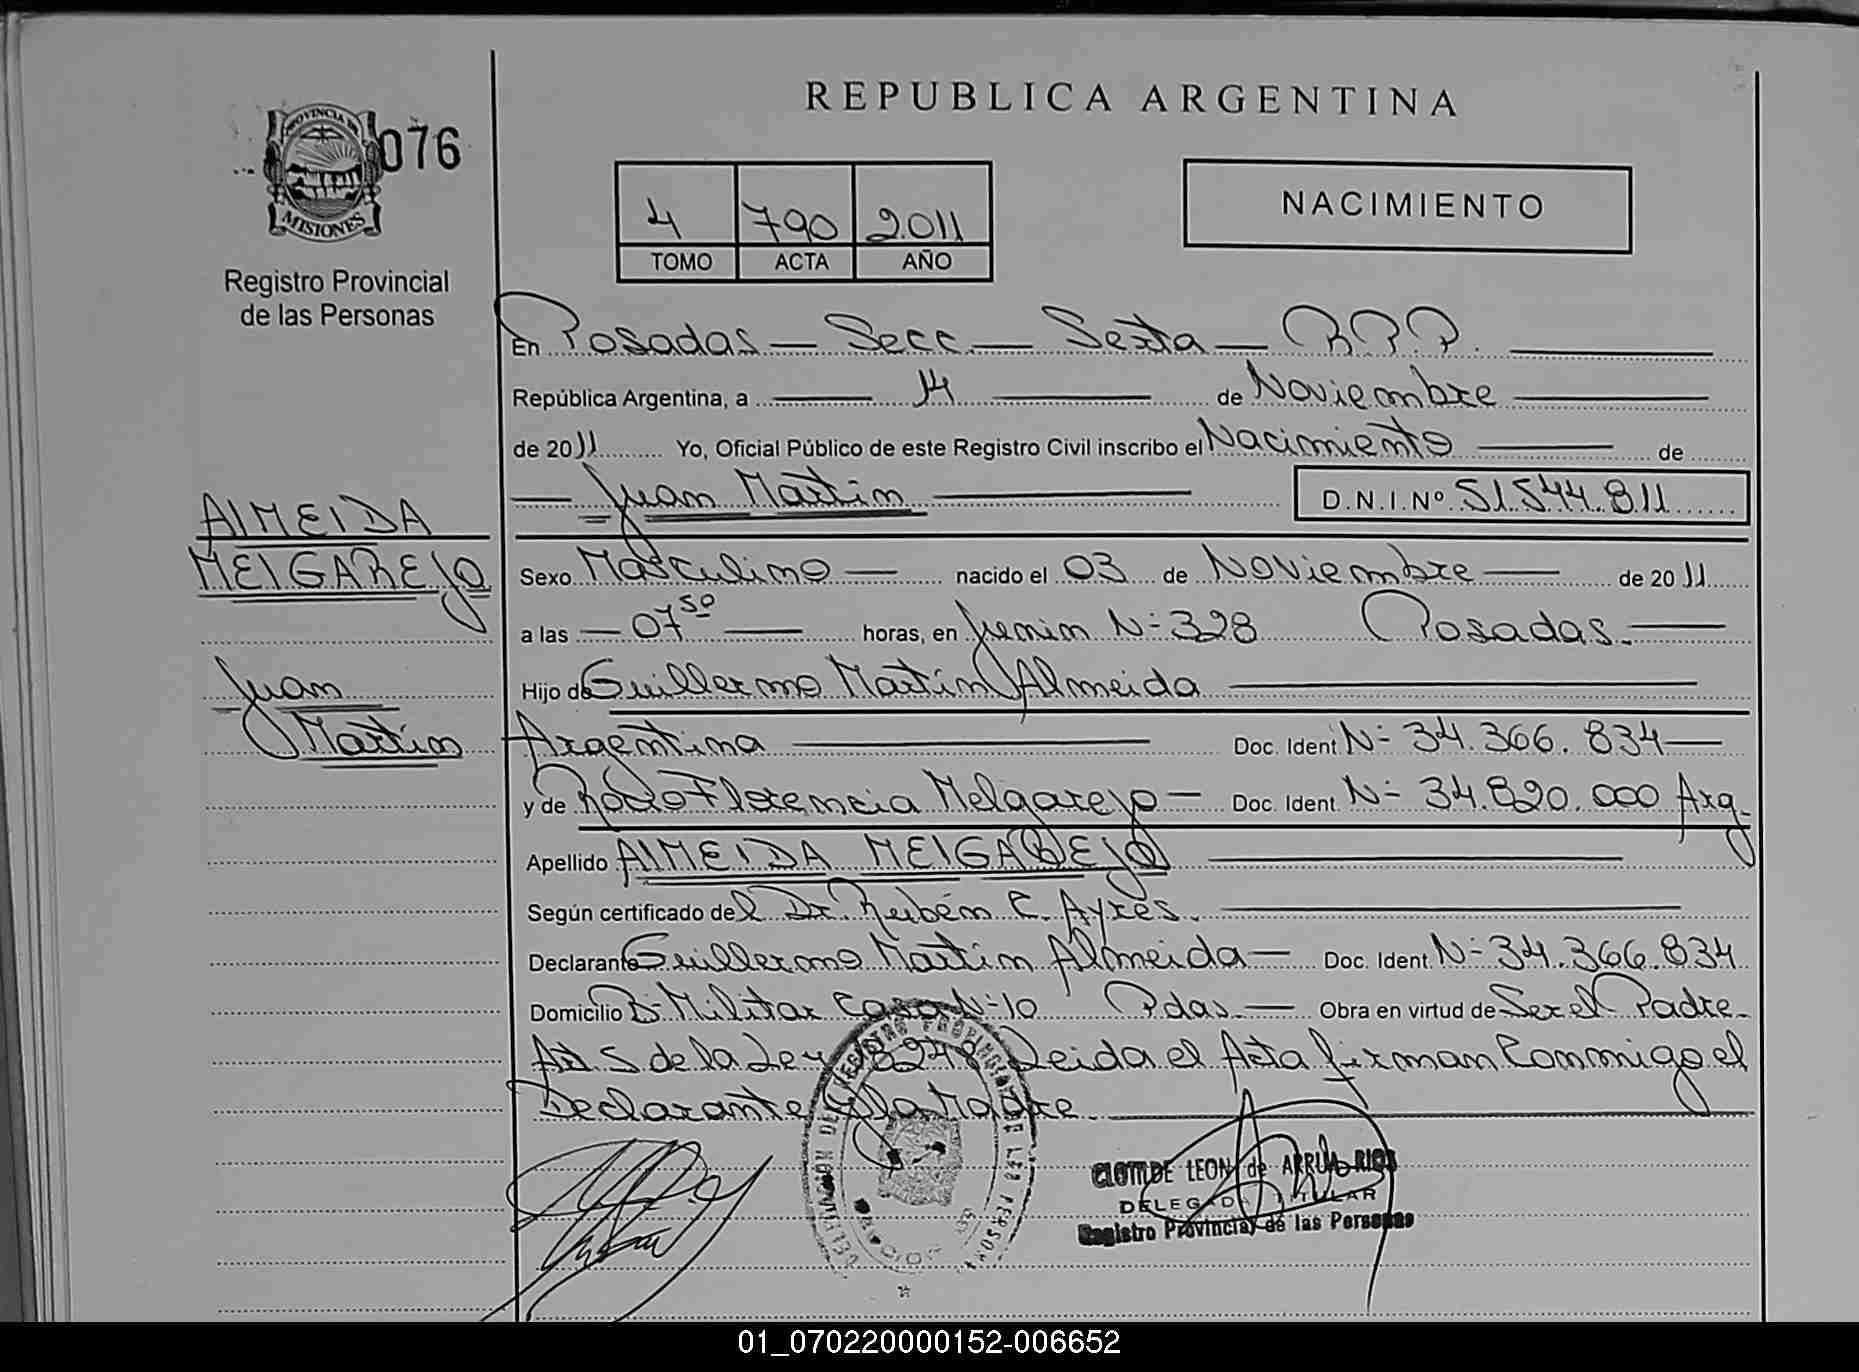 REPUBLICA ARGENTINA
PROVINCIA DE
MISIONES
076
Registro Provincial
de las Personas
4 790 2.011
TOMO ACTA AÑO
NACIMIENTO
En Posadas — Secc. — Sexta — R.P.P.
República Argentina, a — 14 — de Noviembre —
de 2011 Yo, Oficial Público de este Registro Civil inscribo el Nacimiento — de
— Juan Martin — D.N.I.Nº 51.544.811
ALMEIDA
MELGAREJO
Juan
Martin
Sexo Masculino — nacido el 03 de Noviembre — de 2011
a las — 07 50 — horas, en Junin N- 328 Posadas. —
Hijo de Guillermo Martín Almeida —
Argentina — Doc. Ident N- 34.366.834 —
y de Rocio Florencia Melgarejo — Doc. Ident. N- 34.820.000 Arg.
Apellido ALMEIDA MELGAREJO —
Según certificado del Dr. Rubén C. Ayres. —
Declarante Guillermo Martin Almeida — Doc. Ident. N- 34.366.834
Domicilio B- Militar Casa N-10 Pdas. — Obra en virtud de Ser el Padre.
Art. 5 de la Ley 18248 Leida el Acta firman Conmigo el
Declarante y la Madre.
CLOTILDE LEON de ARRUA RIOS
DELEGADA TITULAR
Registro Provincial de las Personas
01_070220000152-006652